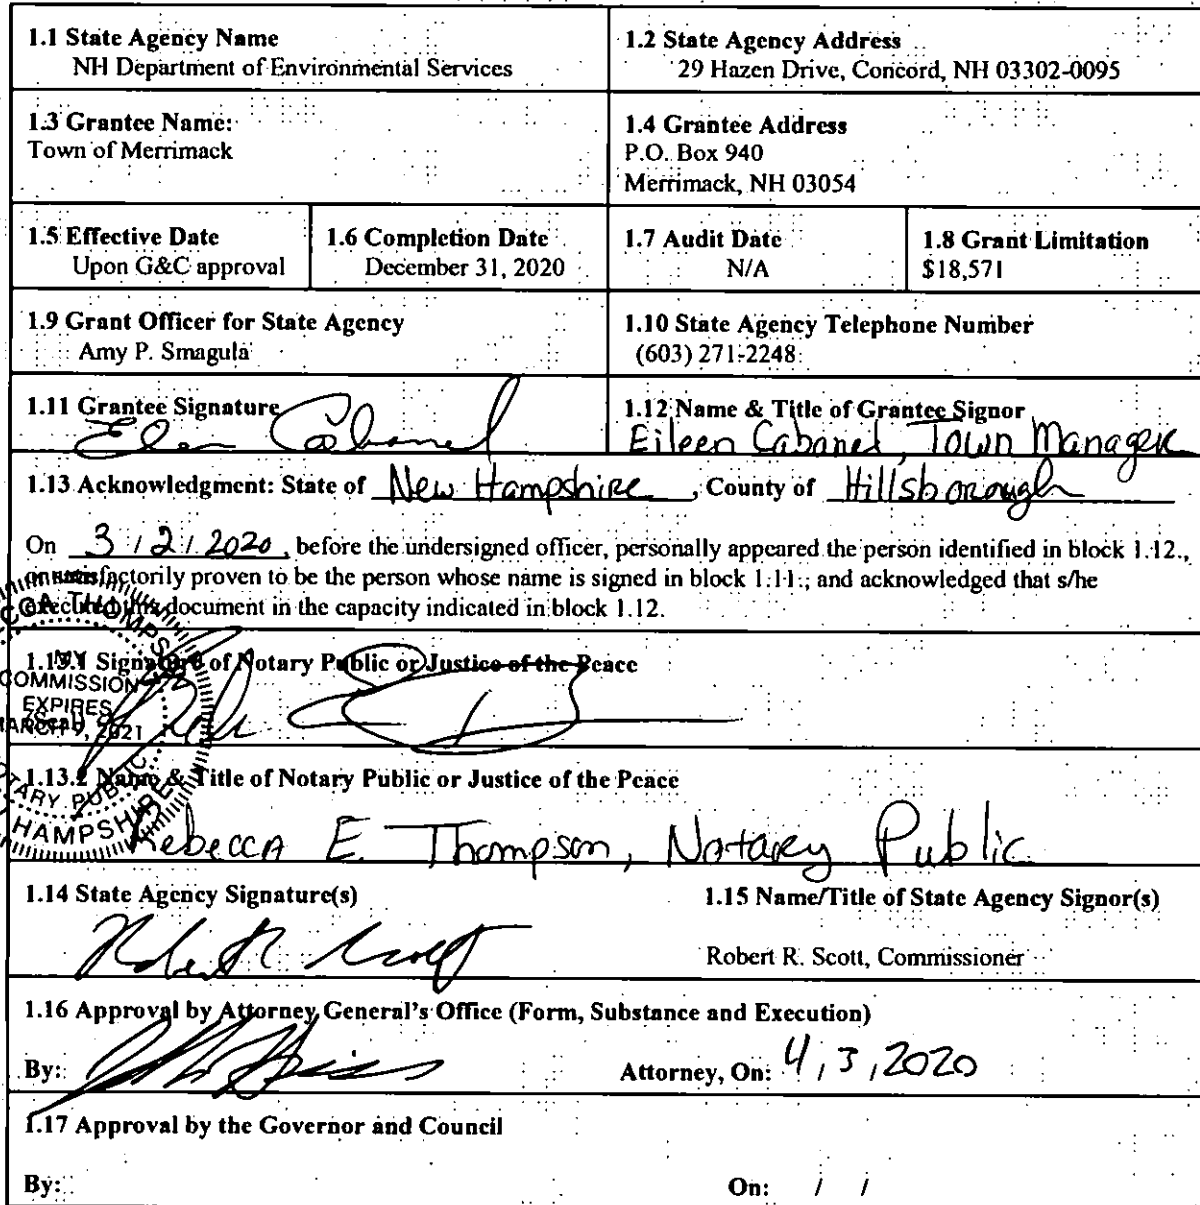 1.1 State Agency Name
NH Department of Environmental Services
1.2 State Agency Address
29 Hazen Drive, Concord, NH 03302-0095
1.3 Grantee Name:
Town of Merrimack
1.4 Grantee Address
P.O. Box 940
Merrimack, NH 03054
1.5 Effective Date
Upon G&C approval
1.6 Completion Date
December 31, 2020
1.7 Audit Date
N/A
1.8 Grant Limitation
$18,571
1.9 Grant Officer for State Agency
Amy P. Smagula
1.10 State Agency Telephone Number
(603) 271-2248
1.11 Grantee Signature
1.12 Name & Title of Grantee Signor
Eileen Cabanel, Town Manager
1.13 Acknowledgment: State of New Hampshire, County of Hillsborough
On 3/2/2020, before the undersigned officer, personally appeared the person identified in block 1.12.,
satisfactorily proven to be the person whose name is signed in block 1.11., and acknowledged that s/he
executed this document in the capacity indicated in block 1.12.
1.13.1 Signature of Notary Public or Justice of the Peace
THOMPSON
MY
COMMISSION
EXPIRES
(Seal)
MARCH 9, 2021
NOTARY PUBLIC
HAMPSHIRE
1.13.2 Name & Title of Notary Public or Justice of the Peace
Rebecca E. Thompson, Notary Public
1.14 State Agency Signature(s)
1.15 Name/Title of State Agency Signor(s)
Robert R. Scott, Commissioner
1.16 Approval by Attorney General's Office (Form, Substance and Execution)
By:
Attorney, On: 4/3/2020
1.17 Approval by the Governor and Council
By:
On: / /